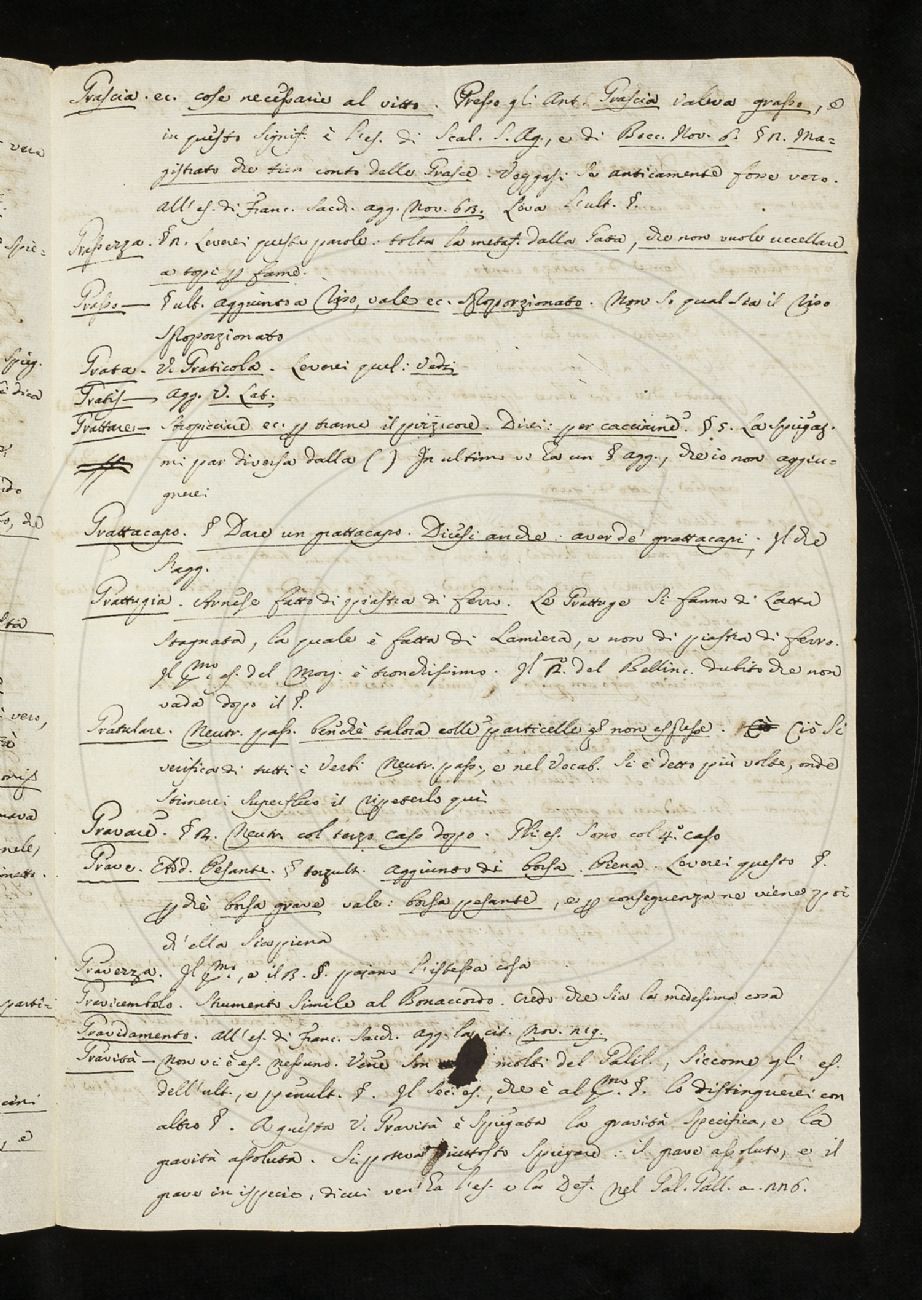 Grascia. ec. cose necessarie al vitto. Presso gli Ant. Grascia valeva grasso, e
in questo signif. è l'es. di Scal. S. Ag., e di Bocc. Nov. 6. § 2. Ma=
gistrato che tien conto delle Grasce. Veggasi se anticamente fosse vero.
all'es. di Franc. Sacch. agg. Nov. Leva l'ult. §.
§ 2. Leverei queste parole: tolta la metaf. dalla Gatta, che non vuole uccellare
a topi per fame.
Grasso — § ult. aggiunto a Viso, vale ec. sproporzionato. Non so qual sia il Viso
sproporzionato
Grata. V. Graticola. Leverei quel: Vedi
Gratis — agg. V. Lat.
Grattare — stropicciare ec. per trarne il pizzicore. Direi: per cacciarne. § 5. La spiegaz.
mi par diversa dalla ( ) In ultimo vi ha un § agg., che io non aggiu=
gnerei
Grattacapo. § Dare un grattacapo. Dicesi anche: aver de' grattacapi. Il che
Agg.
Grattugia. Arnese fatto di piastra di ferro. Le Grattuge si fanno di Latta
stagnata, la quale è fatta di Lamiera, e non di piastra di ferro.
Il es. del Morg. è tronchissimo. Il 2. del Bellinc. dubito che non
vada dopo il §.
Gratulare. Neutr. pass. benchè talora colle particelle non espresse. Ciò si
verifica di tutti i Verbi Neutr. pass., e nel Vocab. si è detto più volte, onde
stimerei superfluo il ripeterlo qui
Gravare. § 2. Neutr. col terzo caso dopo. Gli es. sono col 4.° caso
Grave. Add. Pesante. § terzult. aggiunto di borsa piena. Leverei questo §.
perchè borsa grave vale: borsa pesante, e per conseguenza ne viene poi
ch'ella sia piena
Gravezza. Il mo, e il 3. §. pajano l'istessa cosa
Gravicembolo. Strumento simile al Bonaccordo. Credo che sia la medesima cosa
Gravidamento. all'es. di Franc. Sacch. agg. la cit. Nov.
Gravità — Non vi è es. nessuno. Ve ne son molti del Galil., siccome gli es.
dell'ult., e penult. §. Il sec. es., che è al mo §. lo distinguerei con
altro §. A questa V. Gravità è spiegata la gravità specifica, e la
gravità assoluta. Si poteva piuttosto spiegare: il grave assoluto, e il
grave in ispecie, di cui ven'ha l'es. e la Def. nel Gal. Gall. a.